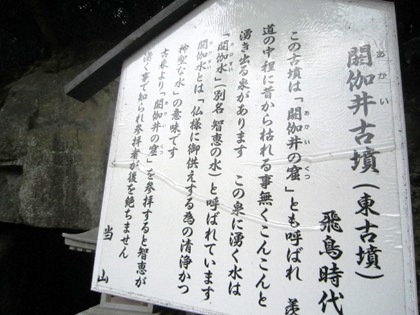 あかい
閼伽井古墳(東古墳)
飛鳥時代
この古墳は「閼伽井の窟」とも呼ばれ
道の中程に昔から枯れる事無くこんこんと
湧き出る泉があります この泉に湧く水は
「閼伽水」(別名 智恵の水)と呼ばれています
閼伽水とは「仏様に御供えする為の清浄かつ
神聖な水」の意味です
古来より「閼伽井の窟」を参拝すると智恵が
湧く事で知られ参拝者が後を絶ちません
当山